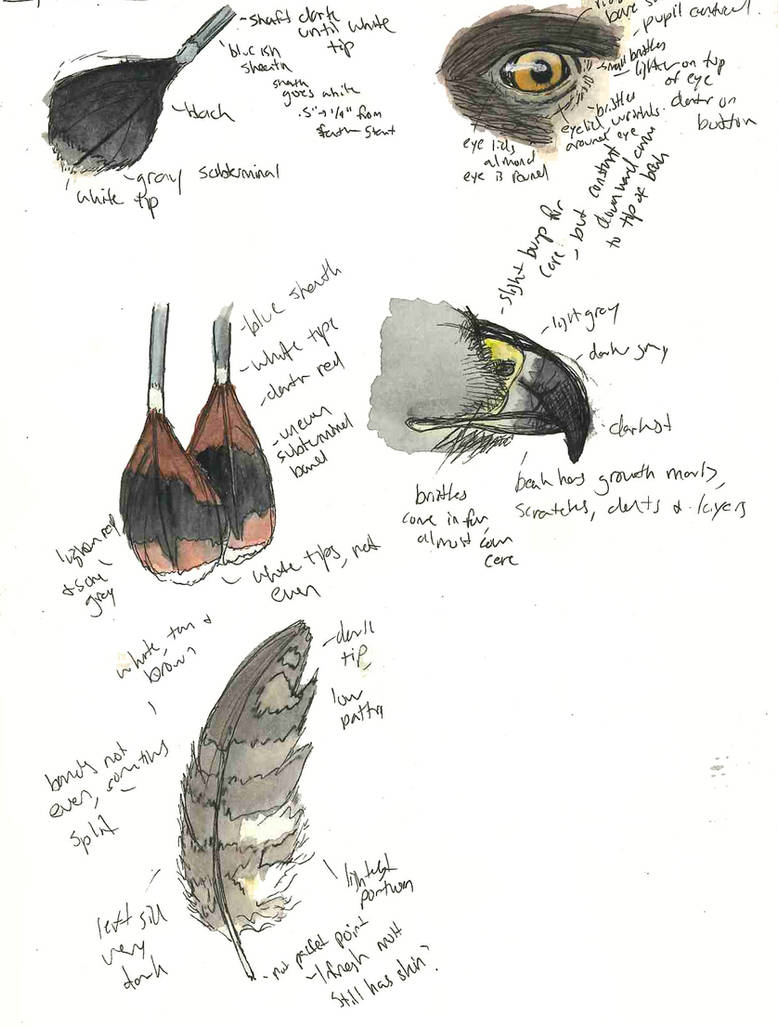 - shaft dark
until white
tip
blueish
sheath
sheath
goes white
.5" → 1/4" from
feather start
- black
- gray subterminal
white tip
- pupil central.
- small bristles
- lighter on top
of eye
darker on
button
- bristles
eyelid wrinkles
around eye
eye lids
almond
eye is round
- slight bump for
cere, but constant
downward curve
to tip of beak
- light gray
- dark gray
- darkest
beak has growth marks,
scratches, dents & layers
bristles
come in fur,
almost
cere
- blue sheath
- white tips
- dark red
- uneven
subterminal
band
lighter red
& some
gray
white tips, not
even
white, tan &
brown
- dark
tip
low
pattern
bands not
even, sometimes
split
left still
very
dark
lightest
portion
- not perfect point
- fresh molt
still has skin?